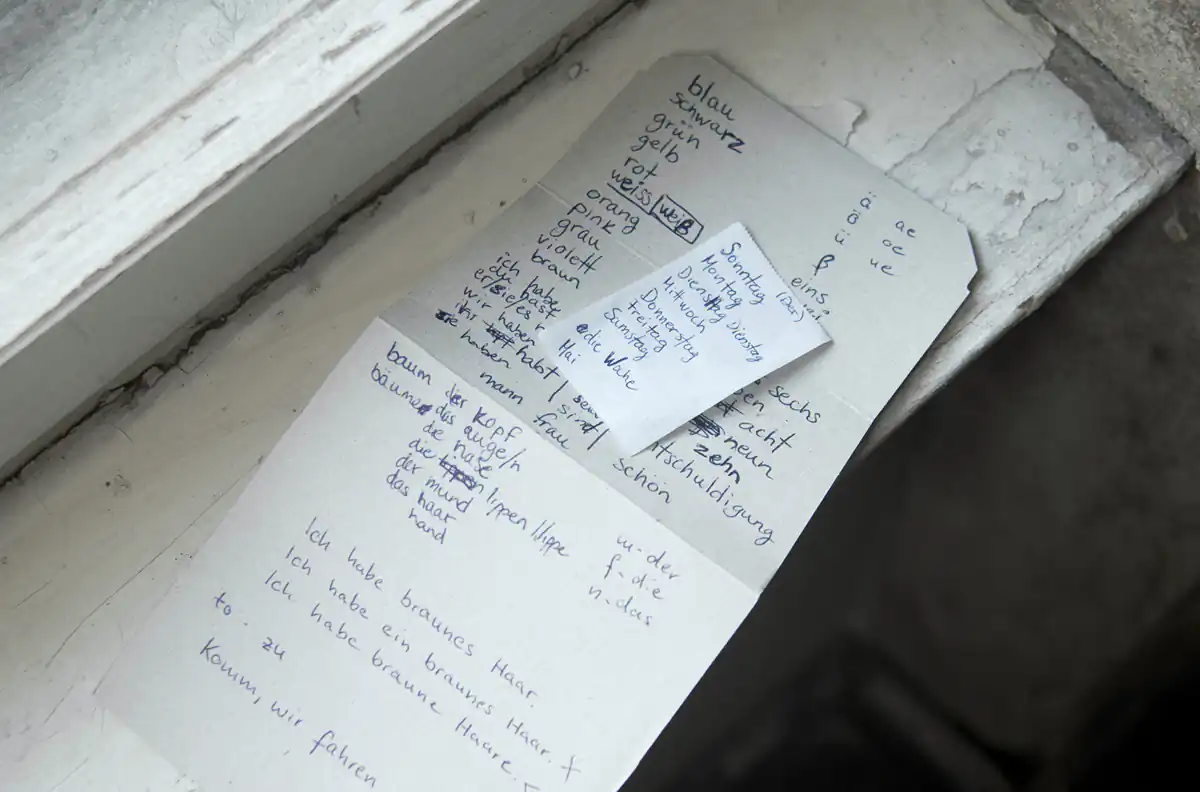 blau
schwarz
grün
gelb
rot
weiss weiß
orang
pink
grau
violett
braun
ich habe
du hast
er/sie/es
wir haben
ihr habt
sie haben
mann frau
sind
ä ae
ö oe
ü ue
ß
eins
sechs
acht
neun
zehn
schön
Sonntag (Der)
Montag
Dienstag Dienstag
Mittwoch
Donnerstag
Freitag
Samstag
die Wahe
Mai
baum der Kopf
bäume das auge/n
die nase
die lippen/lippe
der mund
das haar
hand
m-der
f-die
n-das
Ich habe braunes Haar.
Ich habe ein braunes Haar.
Ich habe braune Haare.
to.. zu
Komm, wir fahren